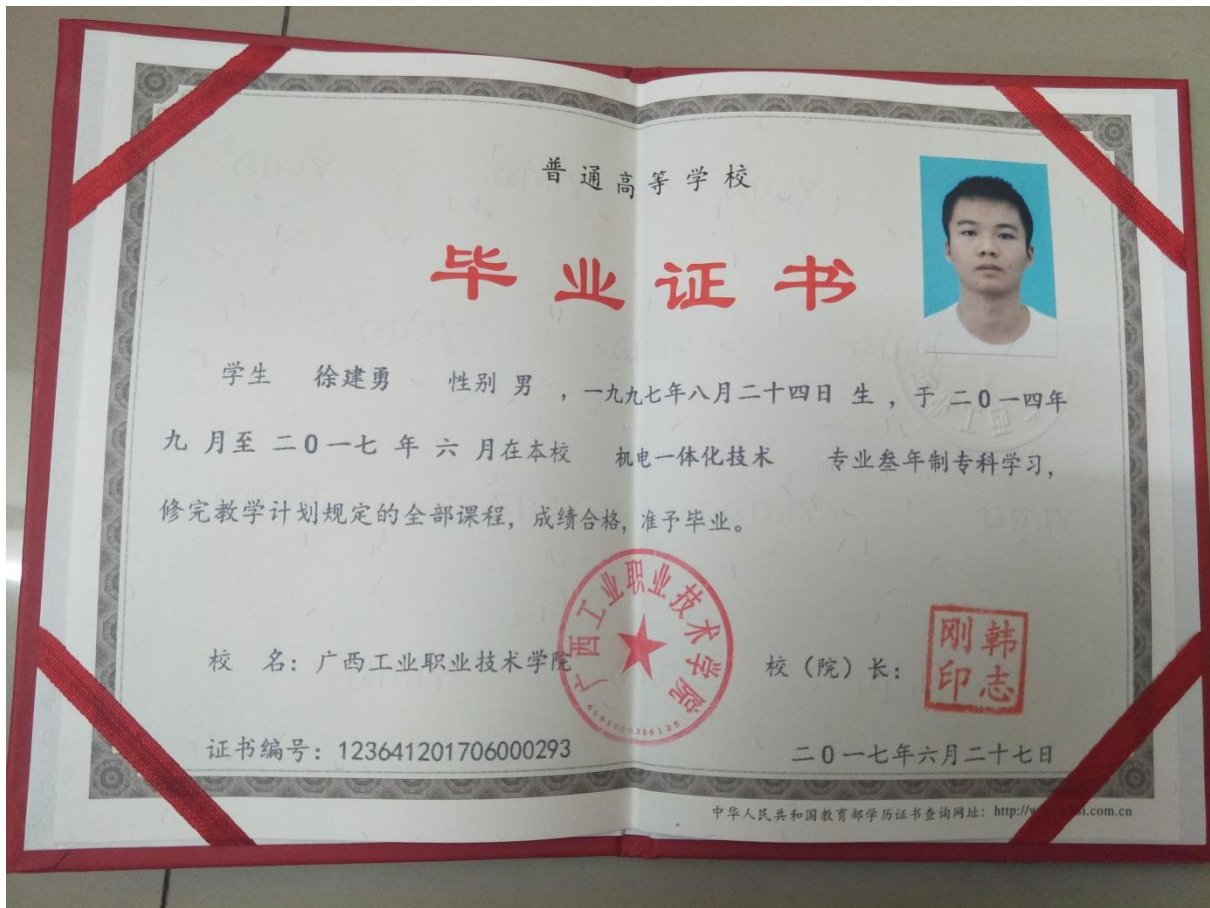 普通高等学校
毕业证书
学生 徐建勇 性别 男 ，一九九七年八月二十四日 生 ，于 二0一四年
九 月至 二0一七 年 六 月在本校 机电一体化技术 专业叁年制专科学习，
修完教学计划规定的全部课程，成绩合格，准予毕业。
广西工业职业技术学院
校 名：广西工业职业技术学院
校（院）长：
韩志刚印
证书编号：123641201706000293
二0一七年六月二十七日
中华人民共和国教育部学历证书查询网址：http://w .com.cn